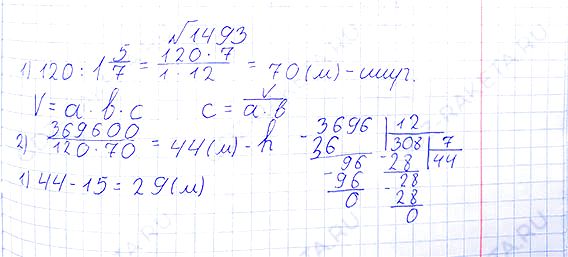 №1493
1) 120 : 1 5/7 = 120·7/1·12 = 70 (м) - шир.
V = a · b · c    c = V/a·b
2) 369600/120·70 = 44 (м) - h
1) 44 - 15 = 29 (м)
3696 | 12
36 | 308 | 7
96 - 28 | 44
96 28
0 28
0